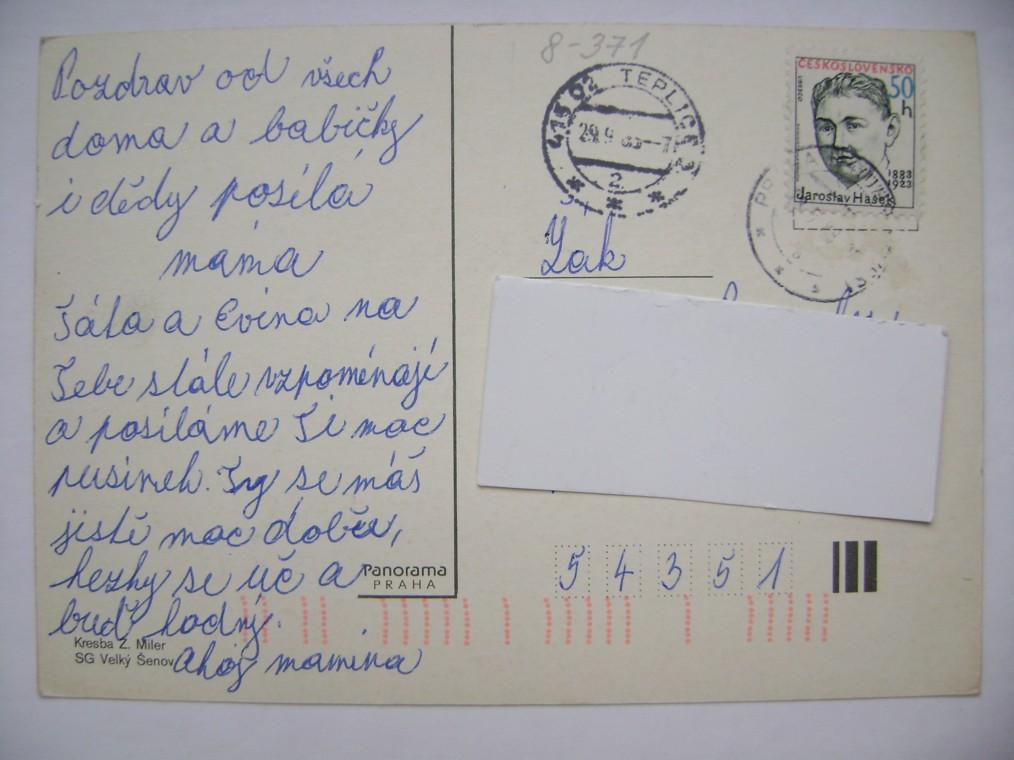 Pozdrav od všech
doma a babičky
i dědy posílá
máma
Táta a Evina na
Tebe stále vzpomínají
a posíláme Ti moc
pusinek. Ty se máš
jistě moc dobře,
hezky se uč a
buď hodný.
Ahoj mamina
Kresba Z. Miler
SG Velký Šenov
Panorama
PRAHA
8-371
415 02 TEPLICE
29.9
2
ČESKOSLOVENSKO
50
h
1883
1923
Jaroslav Hašek
Žák
5 4 3 5 1